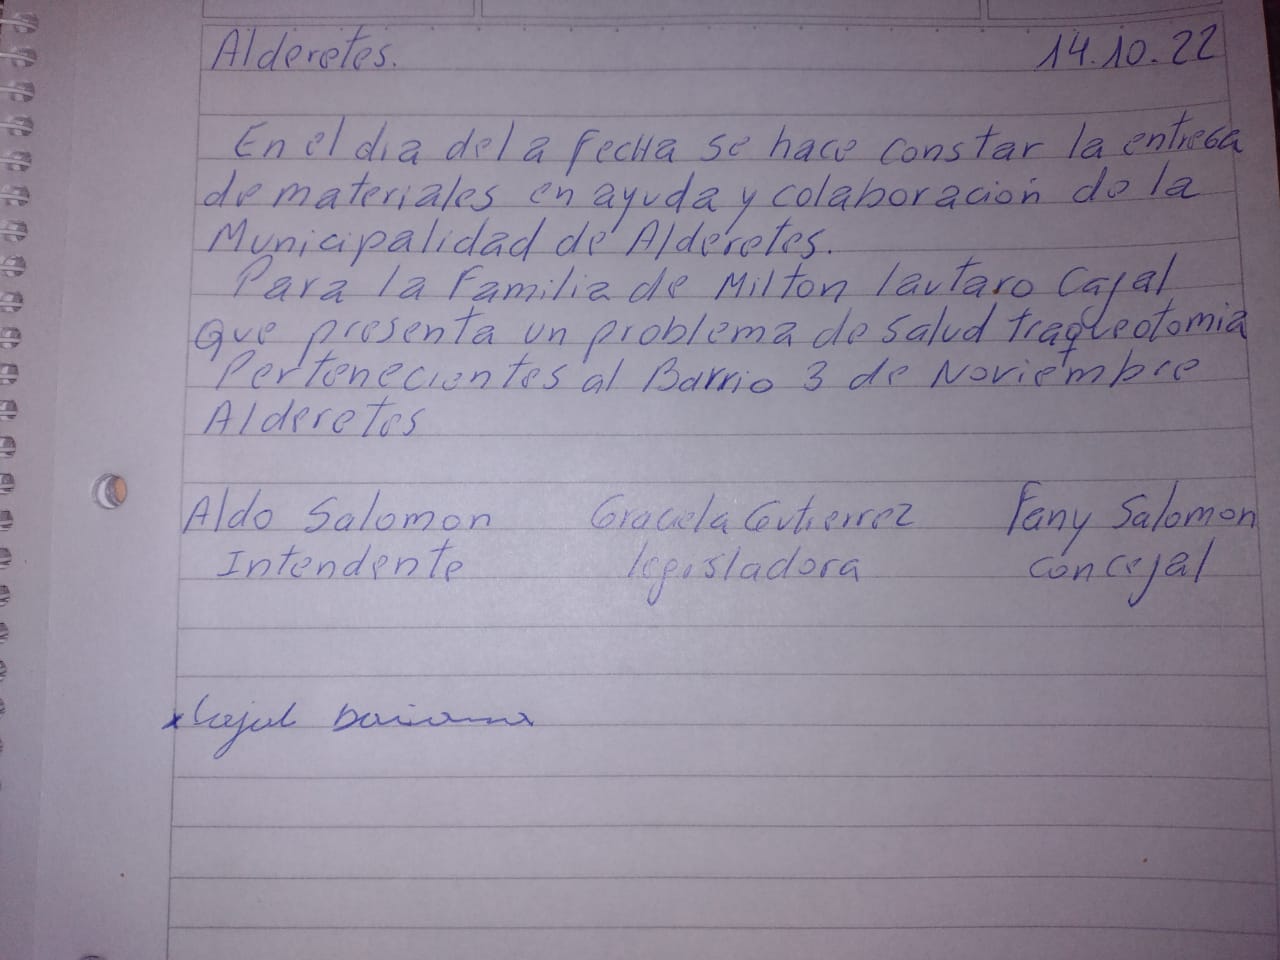 Alderetes. 14.10.22
En el dia de la fecha se hace constar la entrega
de materiales en ayuda y colaboración de la
Municipalidad de Alderetes.
Para la Familia de Milton lautaro Cajal
Que presenta un problema de salud traqueotomia
Pertenecientes al Barrio 3 de Noviembre
Alderetes
Aldo Salomon Graciela Gutierrez Fany Salomon
Intendente legisladora concejal
x Cajal Daiana